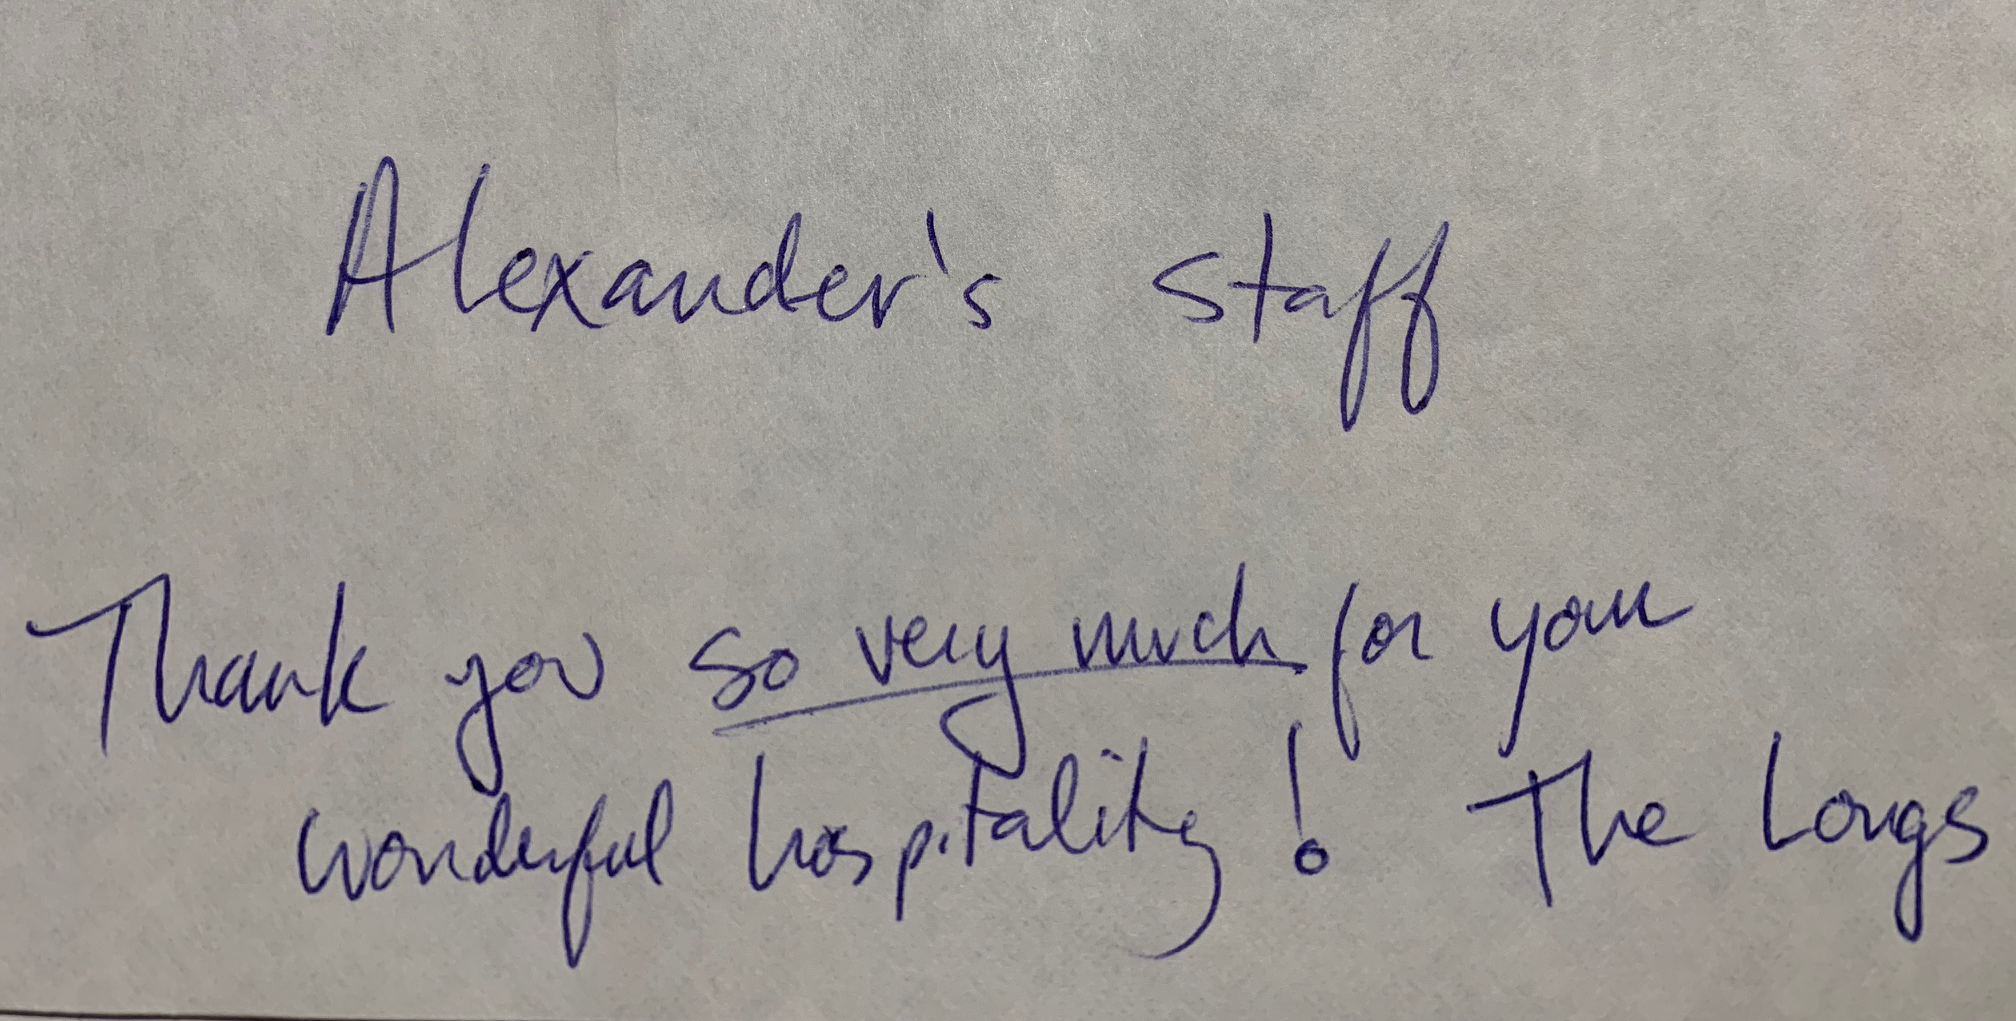 Alexander's staff
Thank you so very much for your
wonderful hospitality! The Longs